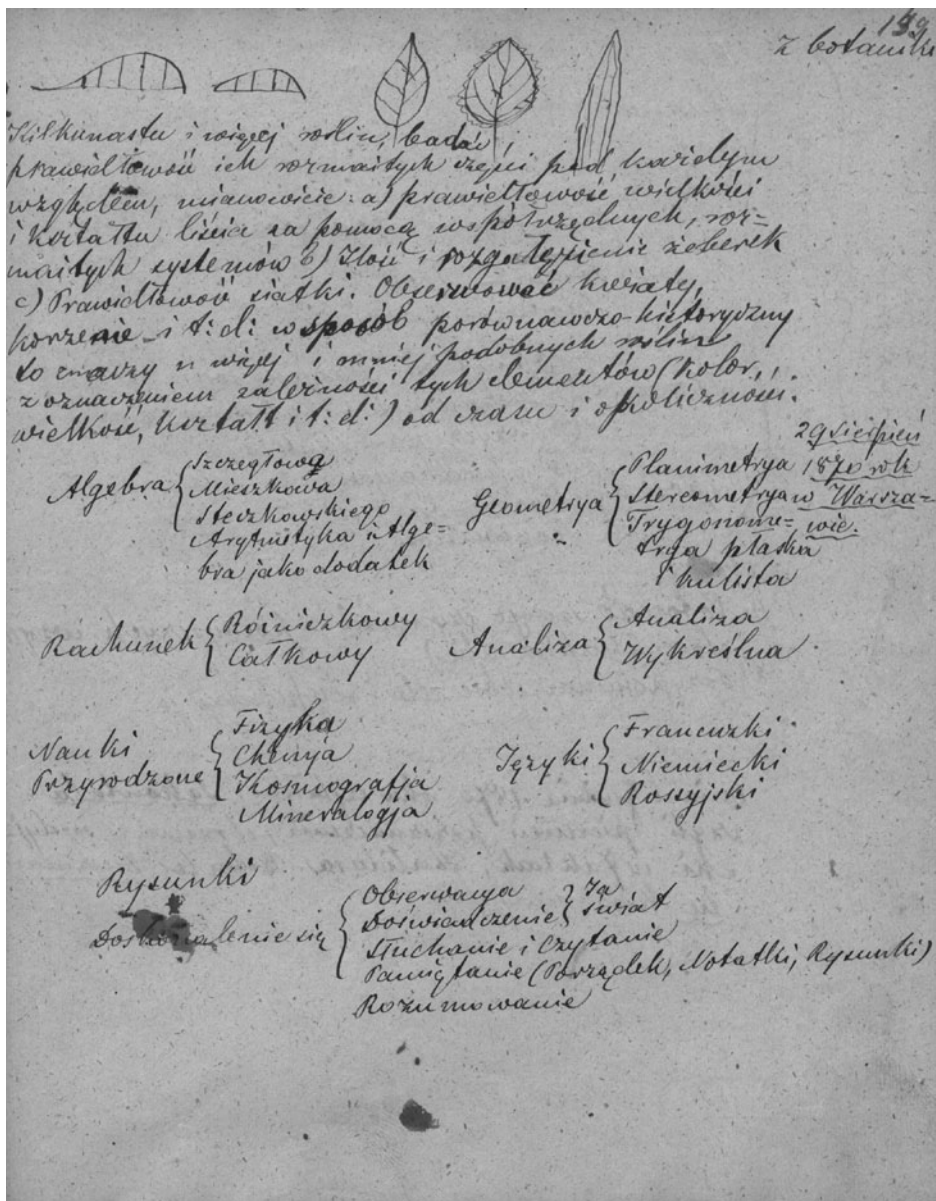 z botaniki
Kilkunastu i więcej roślin, badać
prawidłowość ich rozmaitych części pod każdym
względem, mianowicie: a) prawidłowość wielkości
i kształtu liścia za pomocą współrzędnych, roz=
maitych systemów b) Ilość i rozgałęzienie żeberek
c) Prawidłowość siatki. Obserwować kwiaty,
korzenie i t: d: w sposób porównawczo-historyczny
to znaczy u więcej i mniej podobnych roślin
z oznaczeniem zależności tych elementów (kolor,
wielkość, kształt i t: d:) od czasu i okoliczności.
29 Sierpień
1870 rok
w Warsza=
wie.
Algebra { Szczegłowa
Mieszkowa
Steczkowskiego
Arytmetyka i Alge=
bra jako dodatek
Geometrya { Planimetrya
Stereometrya
Trygonome=
trya płaska
i kulista
Rachunek { Różniczkowy
Całkowy
Analiza { Analiza
Wykreślna
Nauki
Przyrodzone { Fizyka
Chemja
Kosmografja
Mineralogja
Języki { Francuzki
Niemiecki
Rossyjski
Rysunki
Doskonalenie się { Obserwacya
Doświadczenie } Ja
świat
Słuchanie i Czytanie
Pamiętanie (Porządek, Notatki, Rysunki)
Rozumowanie